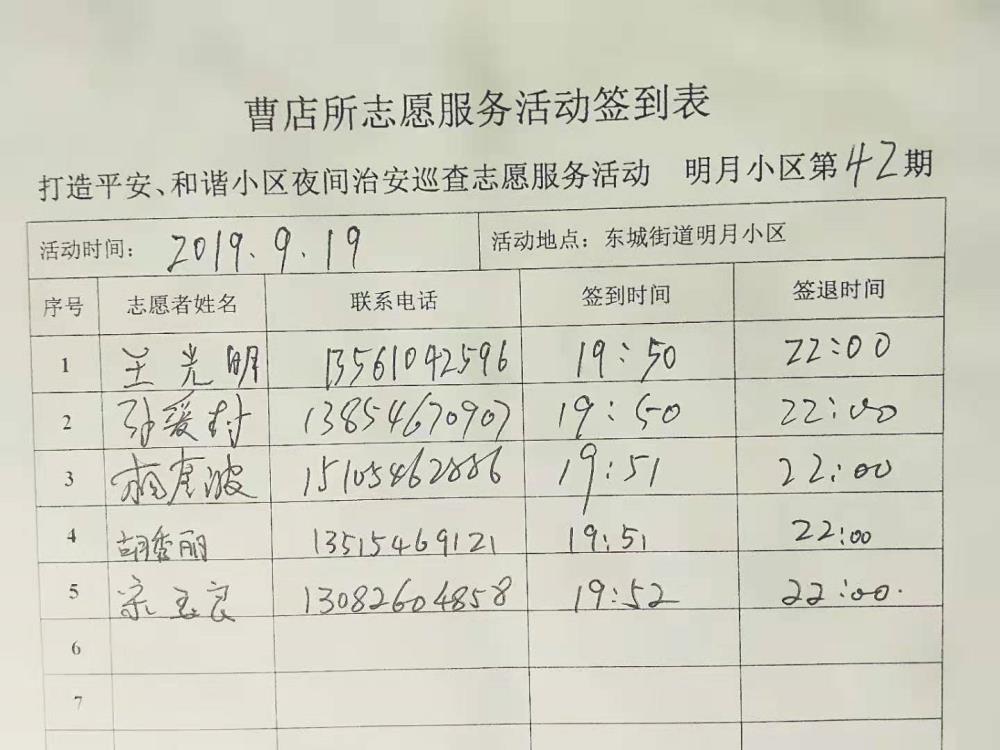 曹店所志愿服务活动签到表
打造平安、和谐小区夜间治安巡查志愿服务活动 明月小区第42期
活动时间: 2019.9.19 活动地点: 东城街道明月小区
序号 志愿者姓名 联系电话 签到时间 签退时间
1 王光明 13561042596 19:50 22:00
2 孙爱村 13854670907 19:50 22:00
3 15105462886 19:51 22:00
4 胡秀丽 13515469121 19:51 22:00
5 宋玉良 13082604858 19:52 22:00.
6
7